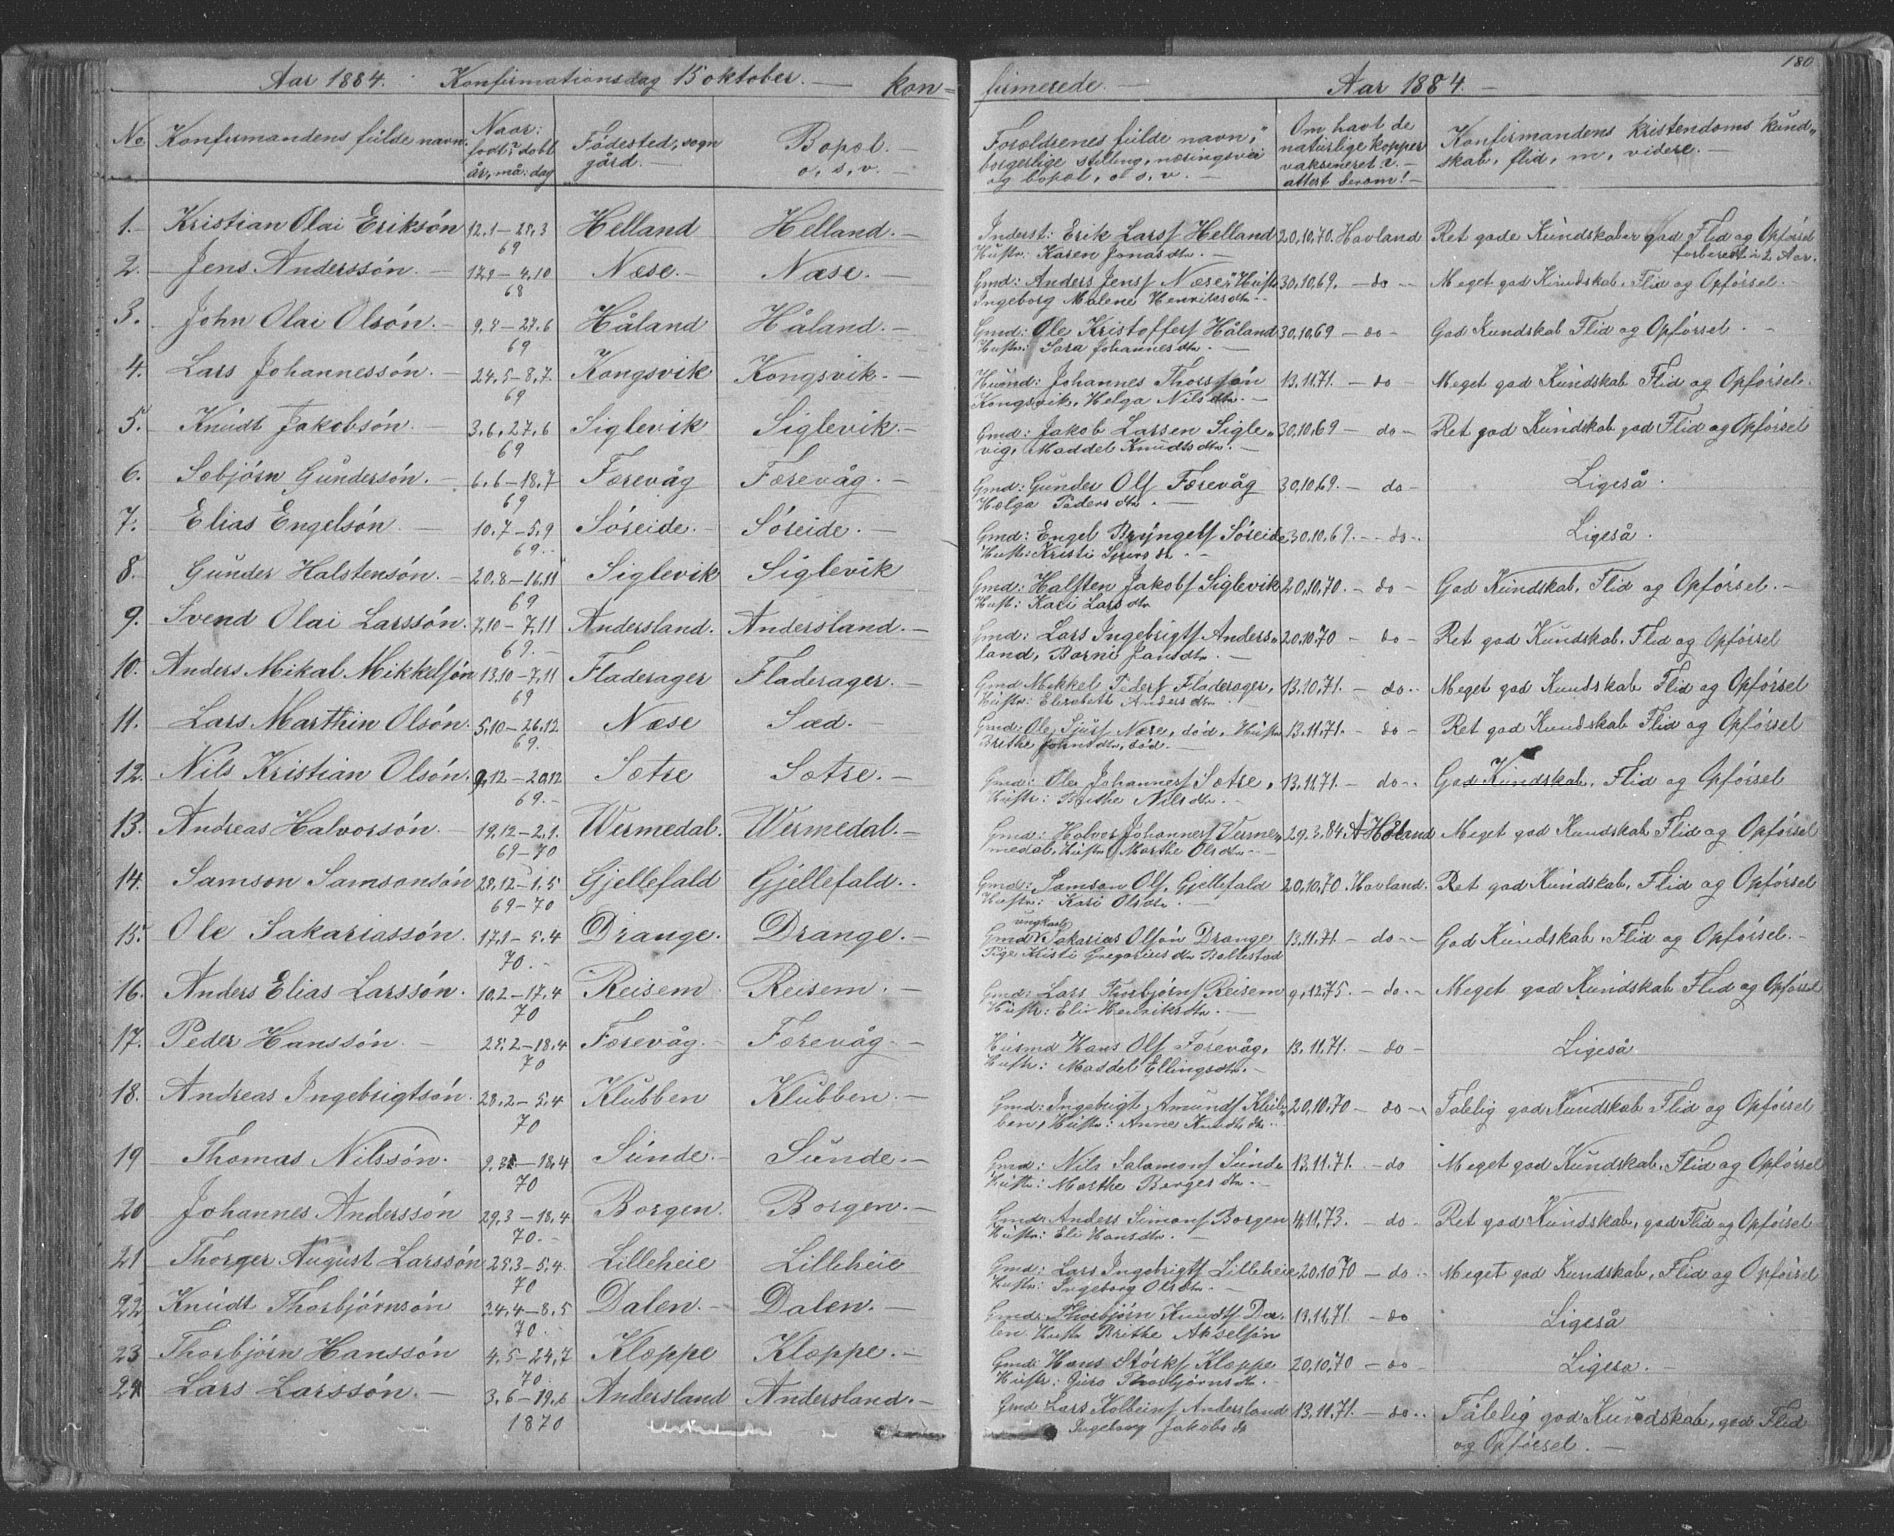 180
Aar 1884. Konfirmationsdag 15 oktober. — kon=
firmerede. — Aar 1884. —
No Konfirmandens fülde navn. Naar: födt? döbt år, må: dag Födested, sogn gård. — Bopæl. — o, s, v. —
Forældrenes fülde navn, borgerlige stilling, næringsvei og bopæl, o s, v. — Om havt de naturlige kopper vaksineret? — attest derom! — Konfirmandens kristendoms künd„ skab, flid, m, videre. —
1. Kristian Olai Eriksón 12.1 – 28.3 69 Helland Helland. —
Inderst: Erik Larsf Helland 20,10,70. Hovland Ret gode Kündskaber god Flid og Opförsel
Hustr: Karen Jonasdtr. — forberedt i 2 Aar.
2. Jens Anderssón. — 17.9 – 4.10 68 Næse. — Næse. —
Gmd: Anders Jensf Næse Hustr 30,10,69. — do — Meget god Kündskab, Flid og Opförsel. —
Ingeborg Malene Henriksdtr. —
3. John Olai Olsón. — 9.4 – 27.6 69 Håland Håland. —
Gmd: Ole Kristoffersf Håland 30,10,69 — do — God Kundskab Flid og Opförsel. —
Hustr: Sara Johannesdtr. —
4. Lars Johannessón. — 24.5 – 8.7. 69 Kongsvik Kongsvik. —
Huünd: Johannes Thorssón 13.11.71. — do — Meget god Kündskab Flid og Opförsel.
Kongsvik, Helga Nilsdtr. —
5. Knüdt Jakobsón. — 3.6, 27.6 69 Siglevik Siglevik. —
Gmd: Jakob Larsen Sigle„ 30,10,69 — do — Ret god Kündskab god Flid og Opförsel
vig, Maddel Knudtsdtr. —
6. Sebjörn Gündersón. — 6.6 – 18.7 69 Færevåg Færevåg. —
Gmd: Gunder Olsf Færevåg 30,10,69. — do — Ligeså.
Hælga Pedersdtr. —
7. Elias Engelsón. — 10.7 – 5.9 69. Söreide. — Söreide. —
Gmd: Engel Bryngelsf Söreide 30,10,69. — do — Ligeså.
Hustr: Kristi dtr. —
8. Günder Halstensón. — 20.8 – 16.11 69 Siglevik Siglevik
Gmd: Halsten Jakobsf Siglevik 20,10,70. — do — God Kündskab, Flid og Opförsel. —
Hustr: Kari Larsdtr
9. Svend Olai Larssón. 7.10 – 7.11 69. — Andersland. Andersland. —
Gmd: Lars Ingebrigtsf Anders= 20,10,70 — do — Ret god Kundskab, Flid og Opförsel
land, Barni Jansdtr. —
10. Anders Mikal Mikkelsón 13.10 – 7.11 69 Fladerager Fladerager. —
Gmd Mekkel Pedersf Fladerager, 13,10,71. — do — Meget god Kündskab Flid og Opförsel
Hustr: Elisabeth Andersdtr.
11. Lars Marthin Olsón. 5.10 – 26.12 69. Næse Sæd. —
Gmd: Ole Sjursf Næse, död, Hustr 13.11.71. — do — Ret god Kundskab Flid og Opförsel
Brithe Johnsdtr, död. —
12. Nils Kristian Olsón. 9.12 – 20.12 69. — Sætre Sætre. —
Gmd: Ole Johannesf Sætre, 13.11.71. — do — God Kündskab, Flid og Opförsel
Hustr: Brithe Nilsdtr. —
13. Andreas Halvorsón. — 19.12 – 2.1. 69–70 Wermedal. Wermedal. —
Gmd: Halvor Johannesf Verme„ 29.3.84 A Höland Meget god Kundskab Flid og Opförsel
medal, Hustr Marthe Olsdtr. —
14. Samson Samsonsón 28.12 – 1.5 69–70 Gjellefald Gjellefald.
Gmd: Samson Olsf. Gjellefald 20,10,70 Hovland. Ret god Kündskab, Flid og Opförsel
Hustr: Kari Olsdtr. —
15. Ole Sakariassón. 17.1 – 5.4 70. Drange. Drange. —
ungkarl
Gmd Sakarias Olsón Drange 13.11.71 — do — God Kündskab, Flid og Opförsel. —
Pige Kristi Gregoriusdtr Bollestad
16. Anders Elias Larssón. 10.2 – 17.4 70 Reisem Reisem. —
Gmd: Lars Thorbjörnsf Reisem 9.12.75. — do — Meget god Kündskab Flid og Opförsel
Hustr: Eli Henriksdtr. —
17. Peder Hanssón. — 25.2 – 18.4 70 Færevåg. — Færevåg. —
Husmd Hans Olsf Færevåg, 13.11.71. — do — Ligeså
Hustr: Maddel Ellingsdtr. —
18. Andreas Ingebrigtsón. 28.2 – 5.4 70 Klübben Klübben. —
Gmd: Ingebrigt Amundsf Klüb„ 20,10,70 — do — Tålelig god Kündskab Flid og Opförsel
ben, Hustr: Anne Knudtsdtr. —
19 Thomas Nilssón. 9.3 – 18.4 70 Sünde. — Sünde. —
Gmd: Nils Salamonsf Sünde 13.11.71. — do Meget god Kündskab, Flid og Opförsel
Hustr: Marthe Bergesdtr. —
20 Johannes Anderssón 29.3 – 18.4 70. — Borgen. Borgen. —
Gmd: Anders Simonsf Borgen 4.11.73. — do — Ret god Kündskab, god Flid og Opförsel
Hustr: Eli Hansdtr. —
21 Thorger Augüst Larssón 25.3 – 5.4 70 Lilleheie Lilleheie
Gmd: Lars Ingebrigtsf Lilleheie 20,10,70 — do — Meget god Kundskab, Flid og Opförsel
Hustr: Ingeborg Olsdtr. —
22 Knüdt Thorbjörnsón 24.4 – 8.5 70. Dalen. — Dalen. —
Gmd: Thorbjörn Knudtsf Da„ 13.11.71. — do Ligeså
len Hustr Brithe Akselsdtr
23 Thorbjörn Hanssón 4.5 – 24.7 70. Kloppe Kloppe. —
Gmd: Hans Störksf Kloppe 20,10,70 — do — Ligeså. —
Hustr: Guro Thorbjörnsdtr. —
24 Lars Larssón. — 3.6 – 19.6 1870 Andersland Andersland. —
Gmd Lars Kolbeinsf Andersland 13.11.71. — do — Tålelig god Kundskab, god Flid
Ingeborg Jakobsdtr og Opförsel. —